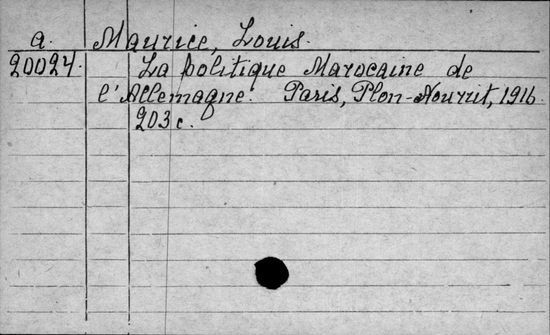 a. Maurice, Louis.
20024. La politique Marocaine de
l'Allemagne. Paris, Plon-Nourrit, 1916.
203 c.